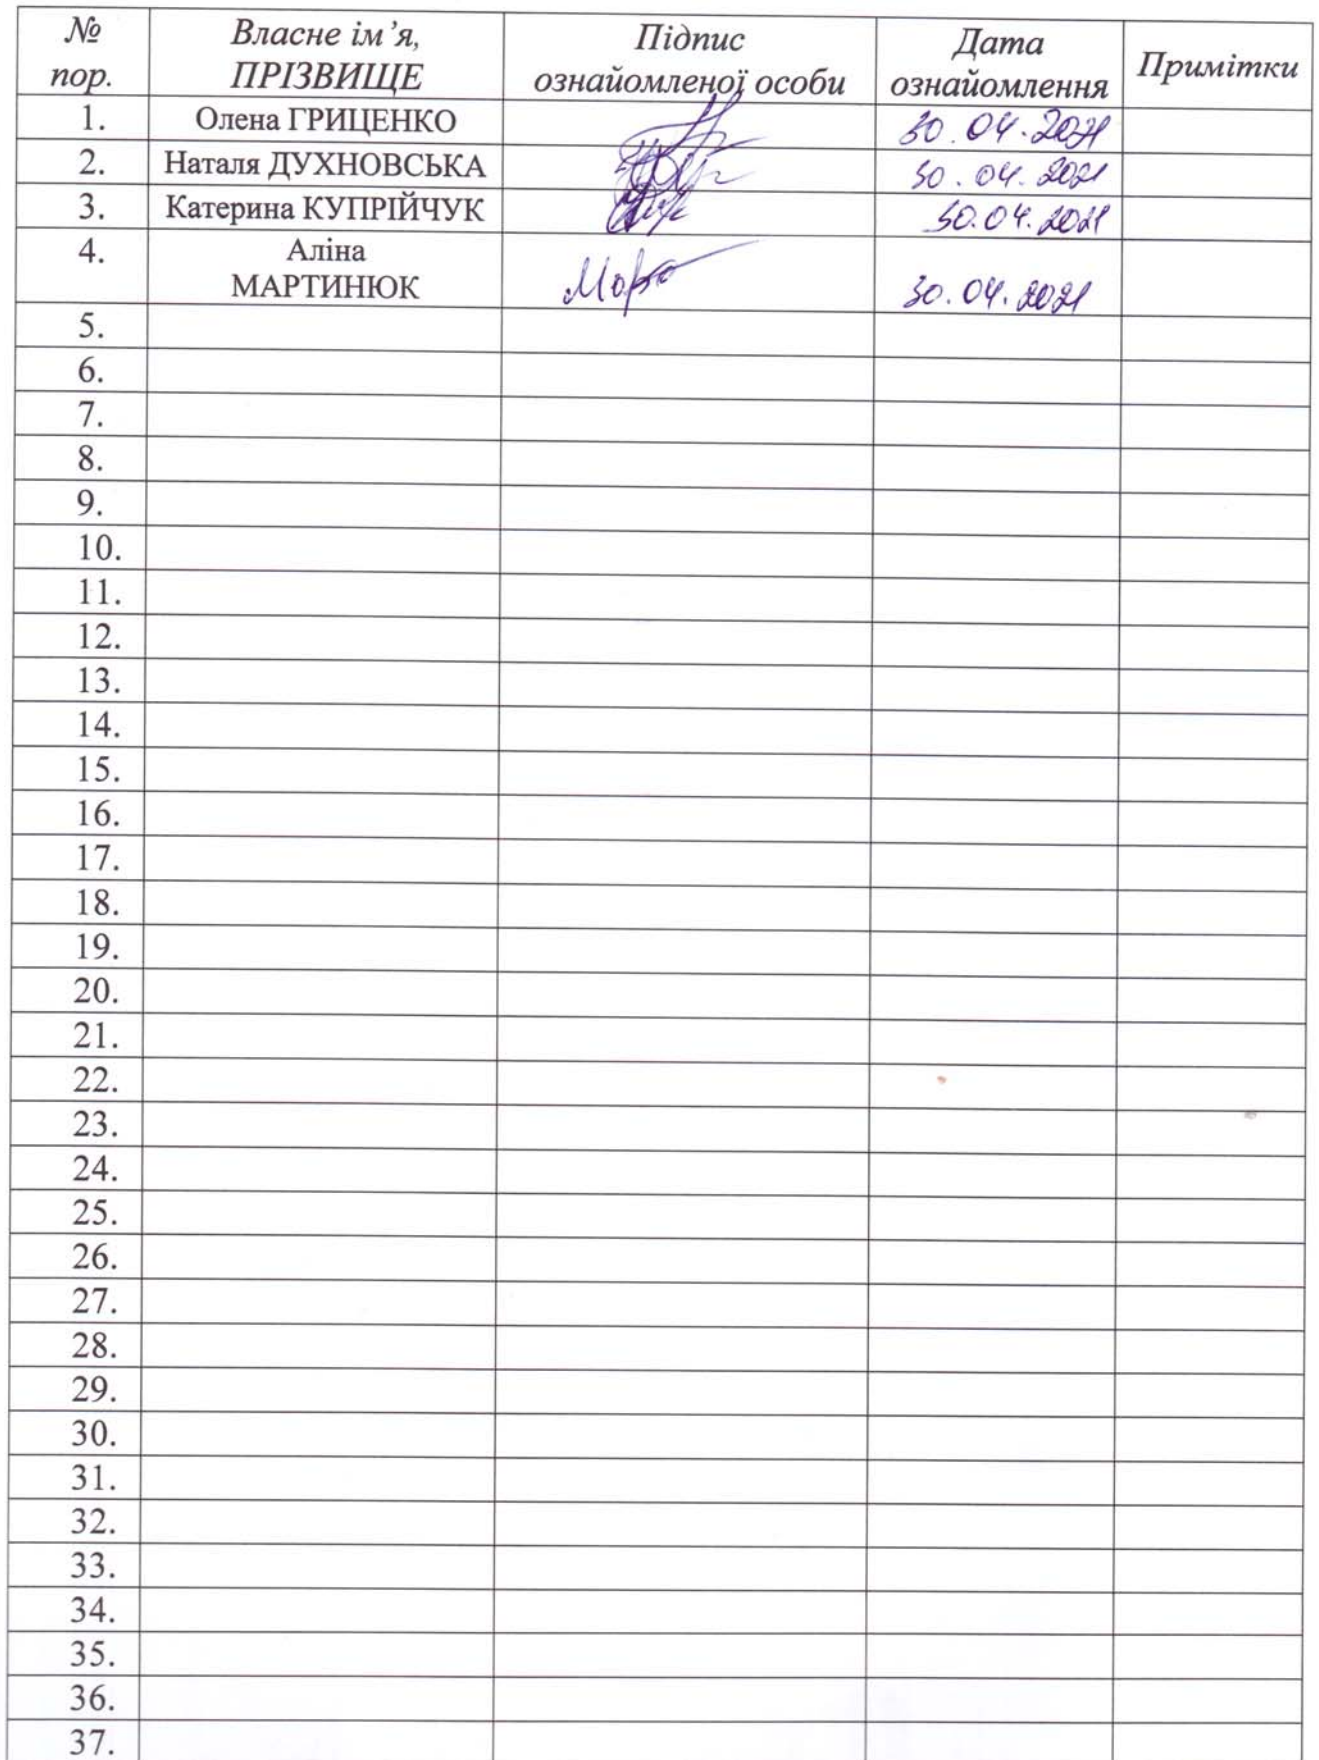 № пор. Власне ім’я, ПРІЗВИЩЕ Підпис ознайомленої особи Дата ознайомлення Примітки
1. Олена ГРИЦЕНКО 30.04.2021
2. Наталя ДУХНОВСЬКА 30.04.2021
3. Катерина КУПРІЙЧУК 30.04.2021
4. Аліна
МАРТИНЮК 30.04.2021
5.
6.
7.
8.
9.
10.
11.
12.
13.
14.
15.
16.
17.
18.
19.
20.
21.
22.
23.
24.
25.
26.
27.
28.
29.
30.
31.
32.
33.
34.
35.
36.
37.